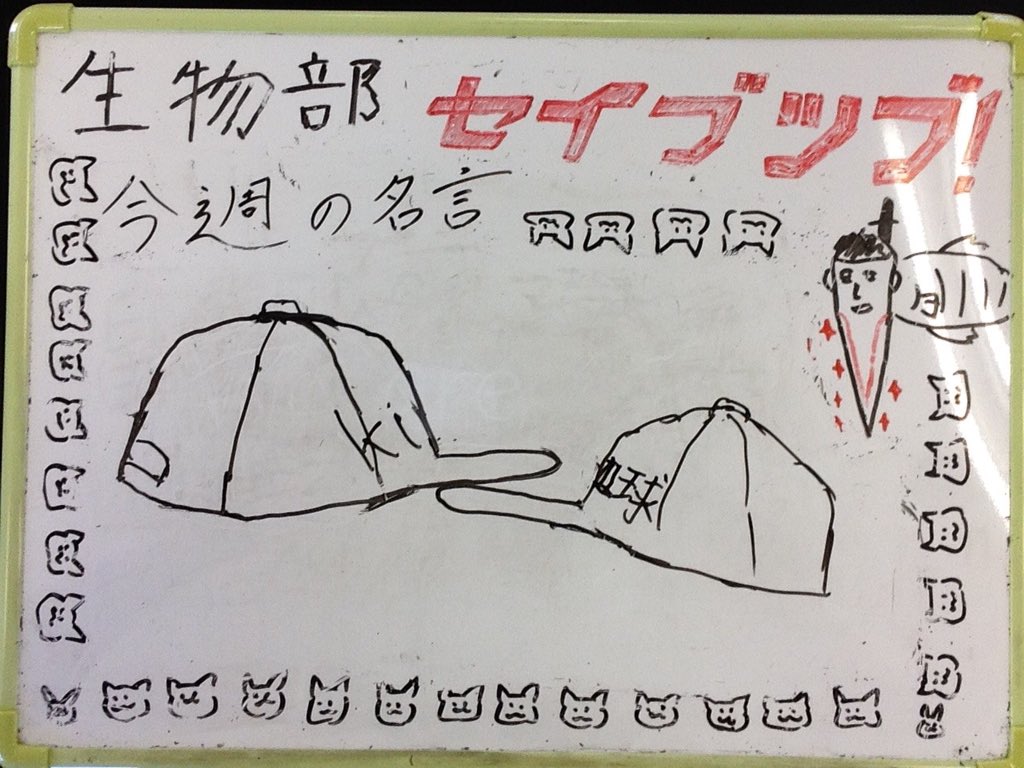 生物部 セイブツブ!
今週の名言
ki